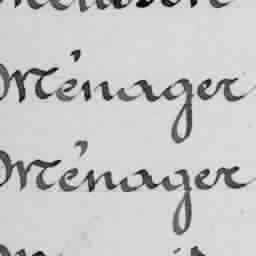 Ménager
Ménager